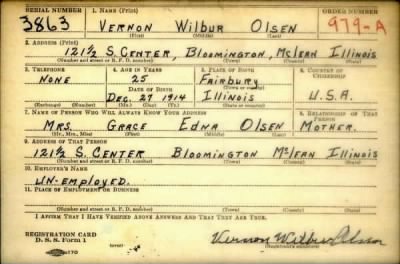 SERIAL NUMBER 1. NAME (Print) ORDER NUMBER
3863 VERNON WILBUR OLSEN 979-A
(First) (Middle) (Last)
2. ADDRESS (Print)
121½ S. CENTER, BLOOMINGTON, MCLEAN ILLINOIS
(Number and street or R. F. D. number) (Town) (County) (State)
3. TELEPHONE 4. AGE IN YEARS 5. PLACE OF BIRTH 6. COUNTRY OF CITIZENSHIP
NONE 25 FAIRBURY
DATE OF BIRTH (Town or county)
DEC. 29 1914 ILLINOIS U.S.A.
(Exchange) (Number) (Mo.) (Day) (Yr.) (State or country)
7. NAME OF PERSON WHO WILL ALWAYS KNOW YOUR ADDRESS 8. RELATIONSHIP OF THAT PERSON
MRS. GRACE EDNA OLSEN MOTHER.
(Mr., Mrs., Miss) (First) (Middle) (Last)
9. ADDRESS OF THAT PERSON
121½ S. CENTER BLOOMINGTON MCLEAN ILLINOIS
(Number and street or R. F. D. number) (Town) (County) (State)
10. EMPLOYER'S NAME
UN-EMPLOYED.
11. PLACE OF EMPLOYMENT OR BUSINESS
(Number and street or R. F. D. number) (Town) (County) (State)
I AFFIRM THAT I HAVE VERIFIED ABOVE ANSWERS AND THAT THEY ARE TRUE.
REGISTRATION CARD
D. S. S. Form 1 Vernon Wilbur Olsen
(Registrant's signature)